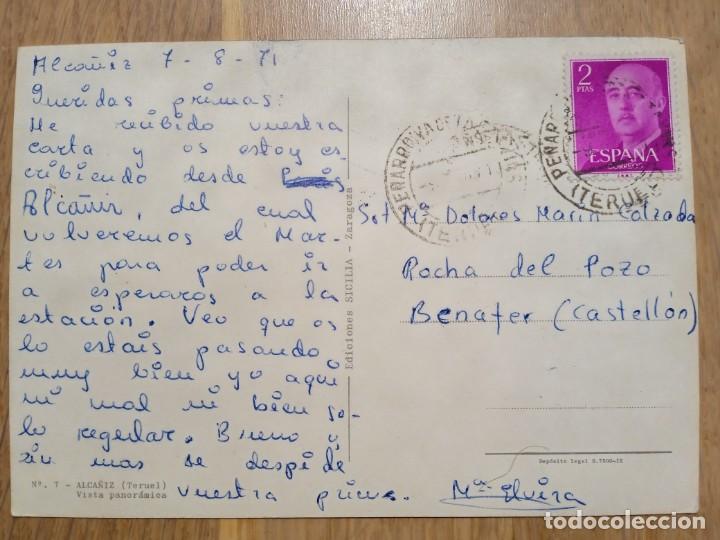 Alcañiz 7-8-71
Queridas primas:
He recibido vuestra
carta y os estoy es-
cribiendo desde
Alcañiz, del cual
volveremos el Mar-
tes para poder ir
a esperaros a la
estación. Veo que os
lo estais pasando
muy bien yo aqui
ni mal ni bien so-
lo regular. Bueno y
sin mas se despide
vuestra prima. Mª Elvira
Nº. 7 - ALCAÑIZ (Teruel)
Vista panorámica
Ediciones SICILIA - Zaragoza
2
PTAS
ESPAÑA
CORREOS
PEÑARROYA DE
(TERUEL)
PEÑARR
(TERUEL
Srt Mª Dolores Marin Calzada
Rocha del Pozo
Benafer (Castellón)
Depósito legal B.7500-IX
todocoleccion
todocoleccion.net